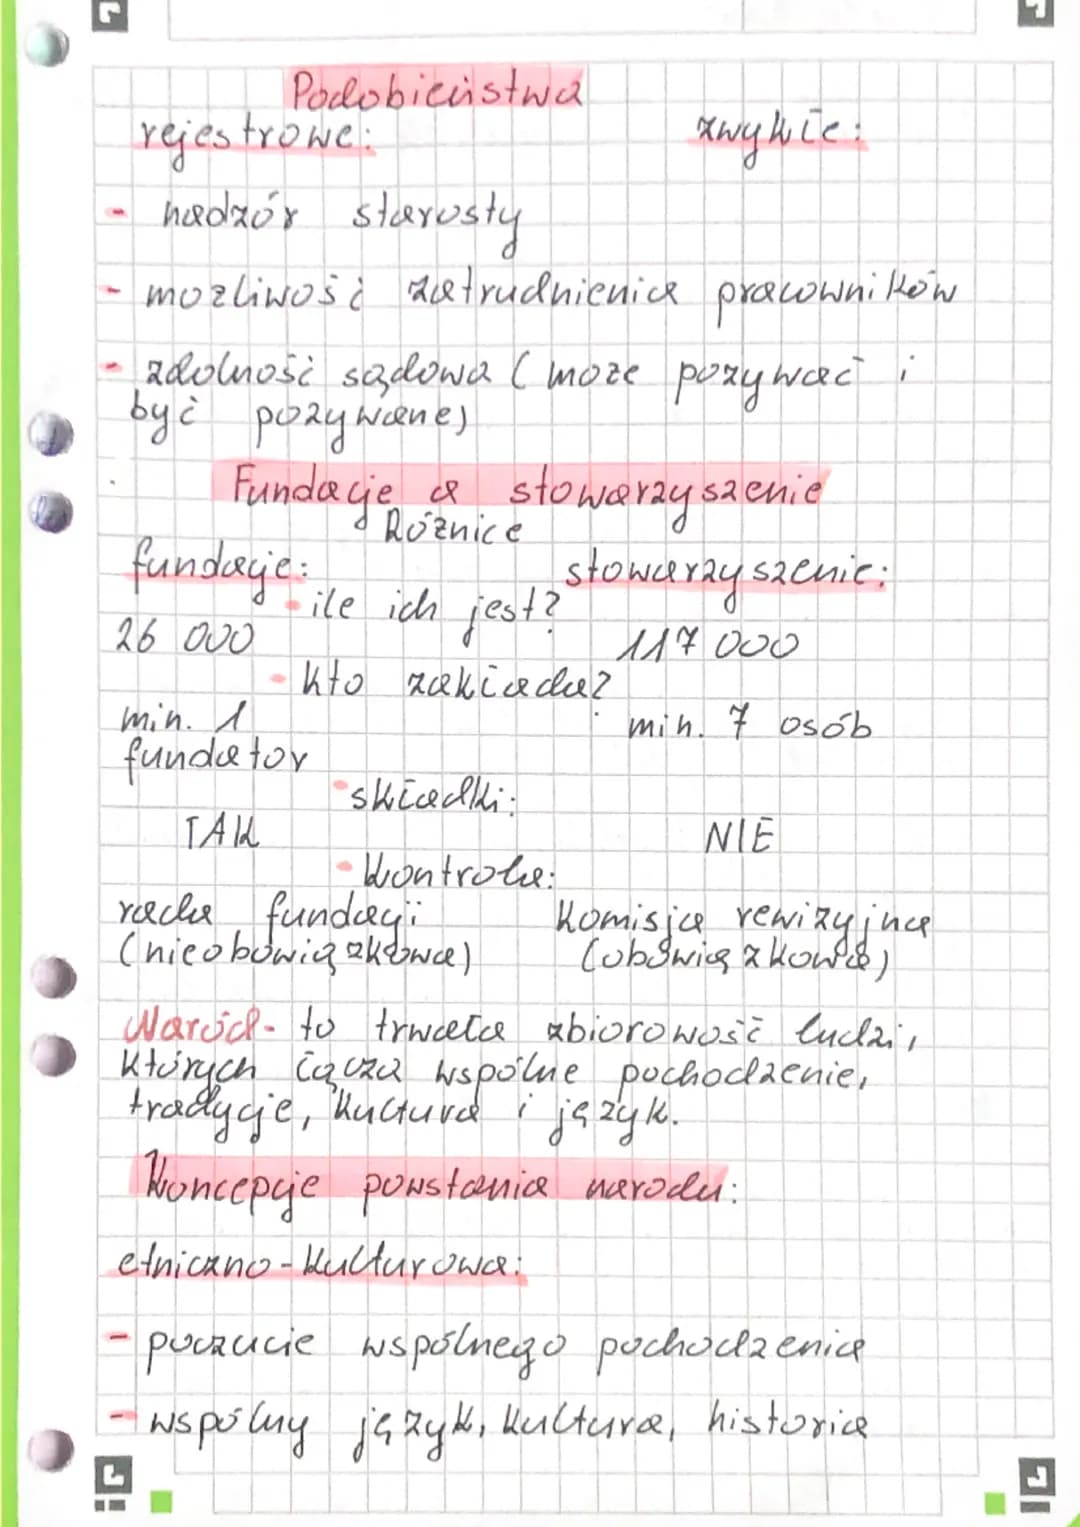 Podobieństwa
rejestrowe: zwykłe:
- nadzór starosty
- możliwość zatrudnienia pracowników
- zdolność sądowa (może pozywać i
być pozywane)
Fundacje a stowarzyszenie
Różnice
fundacje: stowarzyszenie:
- ile ich jest?
26 000 117 000
- kto zakłada?
min. 1 min. 7 osób
fundator
• składki:
TAK NIE
• kontrola:
rada fundacji komisja rewizyjna
(nieobowiązkowa) (obowiązkowa)
Naród - to trwała zbiorowość ludzi,
których łącza wspólne pochodzenie,
tradycje, kultura i język.
Koncepcje powstania narodu:
etniczno-kulturowa:
- poczucie wspólnego pochodzenia
- wspólny język, kultura, historia